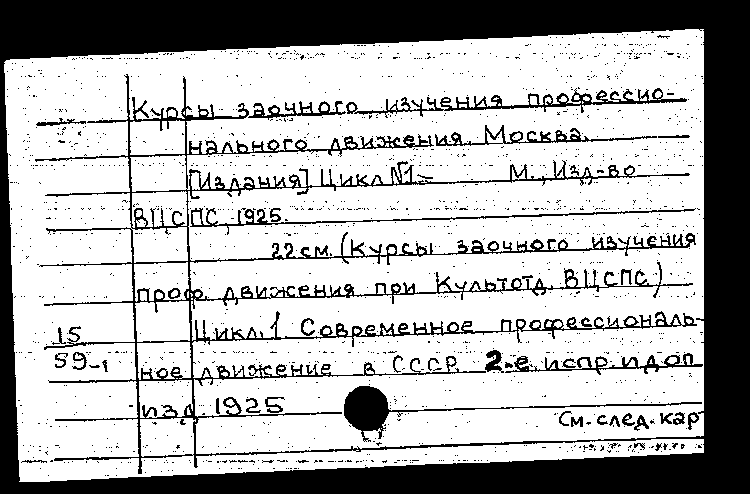 Курсы заочного изучения профессио-
нального движения. Москва.
[Издания]. Цикл №1- М., Изд-во
ВЦСПС, 1925.
22 см. (Курсы заочного изучения
проф. движения при Культотд. ВЦСПС)
15 Цикл. 1. Современное профессиональ-
59-1 ное движение в СССР. 2-е испр. и доп
изд. 1925
См. след. кар